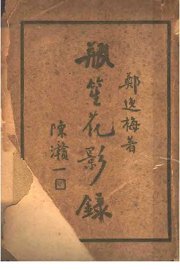 鄭逸梅著
瓶笙花影錄
陳灨一